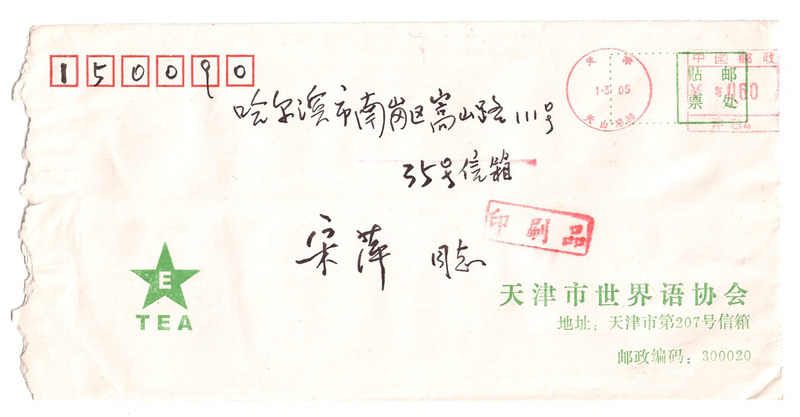 150090
中国邮政
贴邮
票处
哈尔滨市南岗区嵩山路111号
35号信箱
印刷品
宋萍 同志
E
TEA
天津市世界语协会
地址：天津市第207号信箱
邮政编码：300020